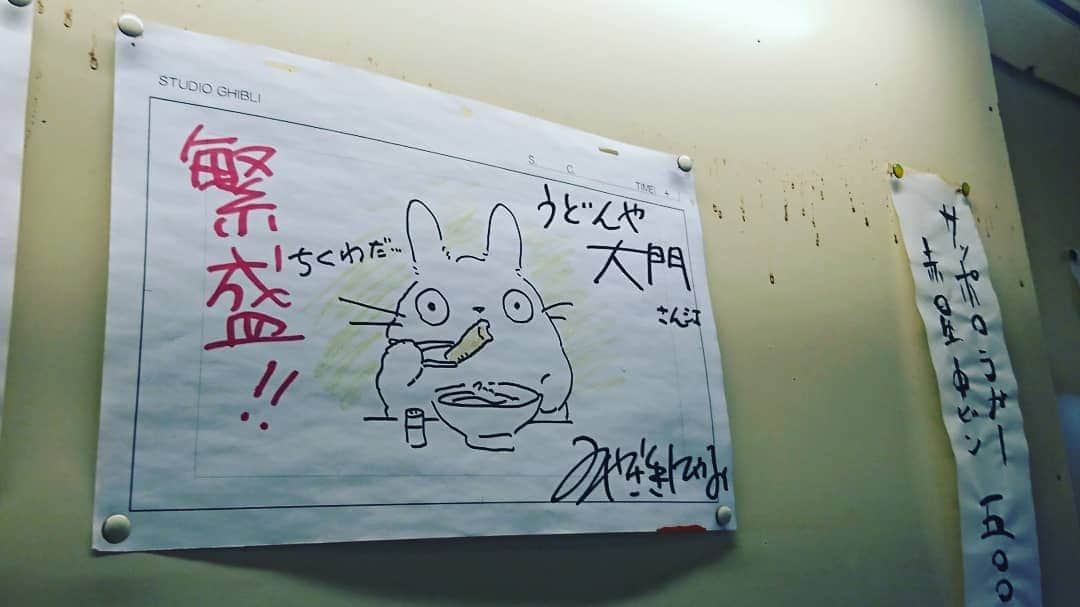 STUDIO GHIBLI
S. C. TIME( +
うどんや
大門
さん江
ちくわだ…
繁盛!!
みやざきはやお
サッポロラガー 五〇〇
赤星中ビン